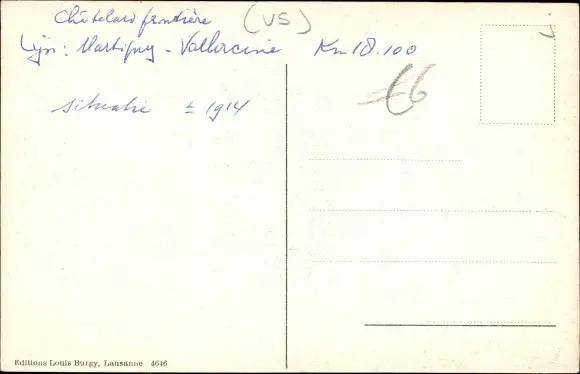 Châtelard frontière (VS)
Lijn: Martigny - Vallorcine Km 18.100
€6
situatie ± 1914
Editions Louis Burgy, Lausanne 4646